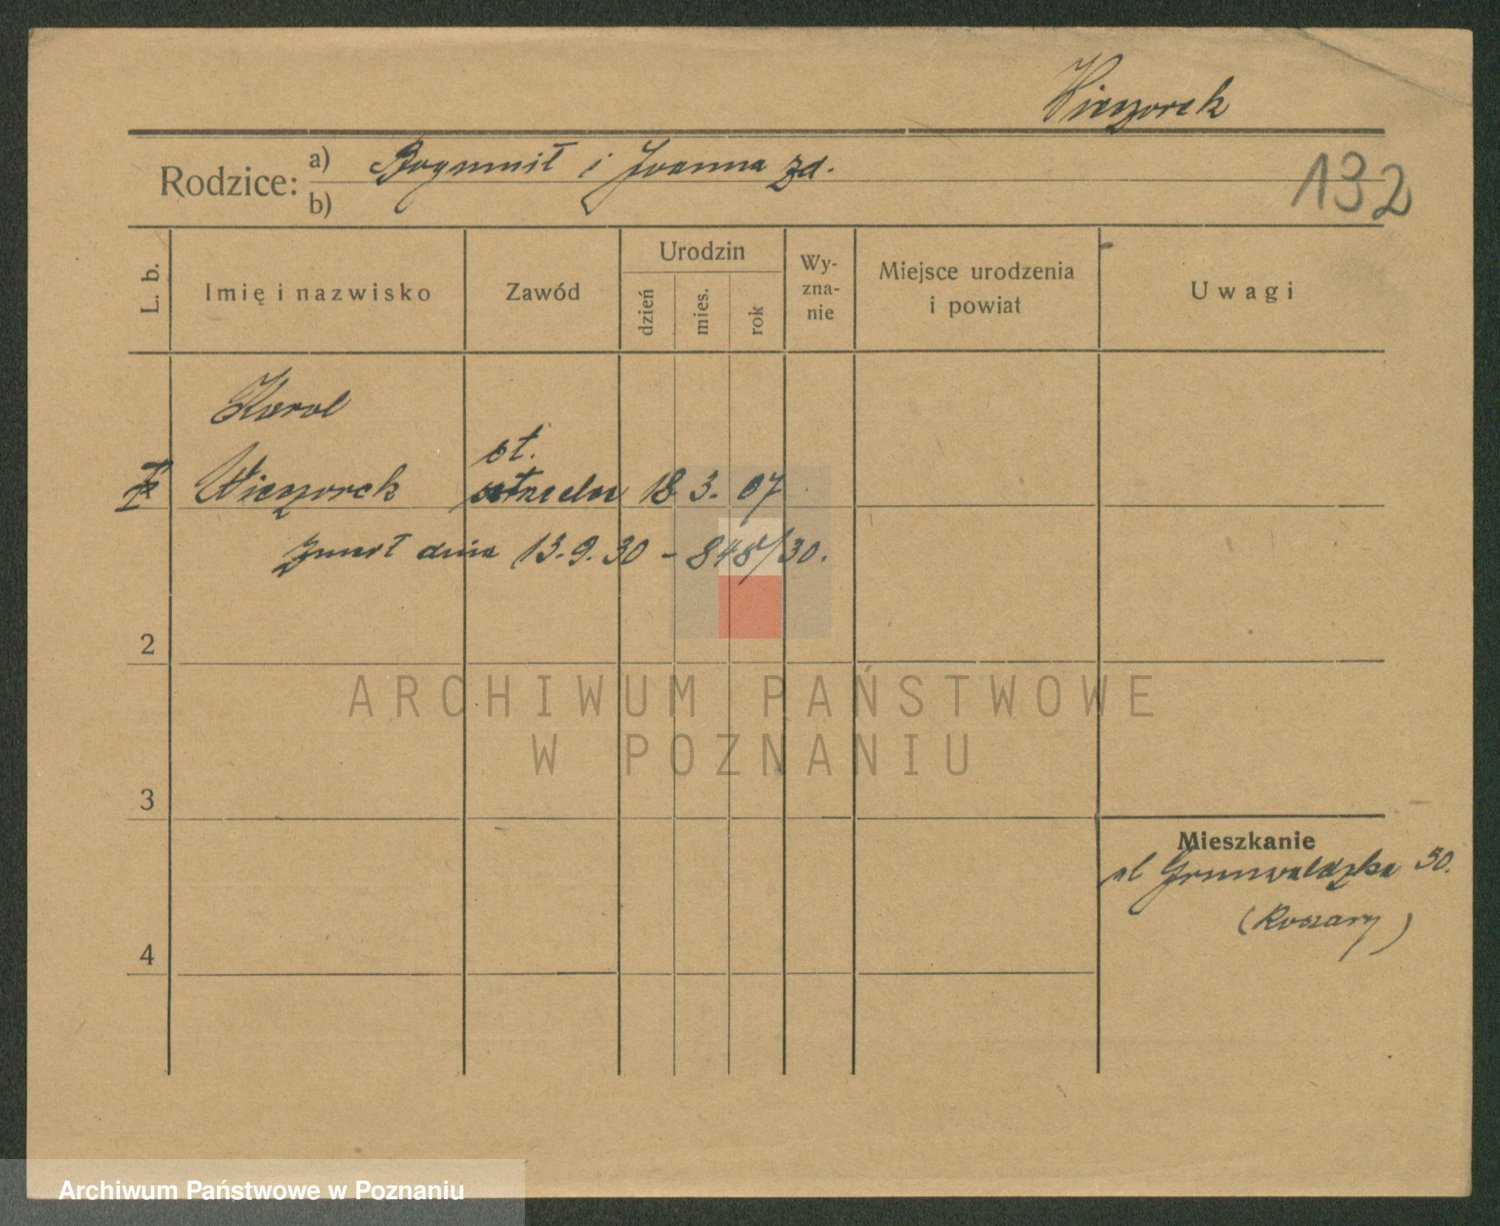 Wieczorek
Rodzice: a) Bogumił i Joanna zd.
b)
132
L. b. Imię i nazwisko Zawód Urodzin dzień mies. rok Wy-zna-nie Miejsce urodzenia i powiat Uwagi
Karol
st.
Wieczorek strzelec 18 3. 07
zmarł dnia 13.9.30 - 848/30.
2
3
4
Mieszkanie
ul Grunwaldzka 50.
(Koszary)
ARCHIWUM PAŃSTWOWE
W POZNANIU
Archiwum Państwowe w Poznaniu